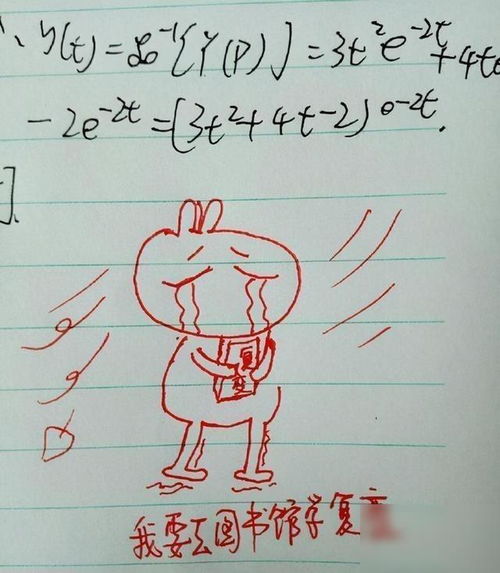 y(t)=ℒ⁻¹{Y(p)}=3t²e^{-2t}+4te
-2e^{-2t}=(3t²+4t-2)e^{-2t}.
].
复
变
我要去图书馆学复